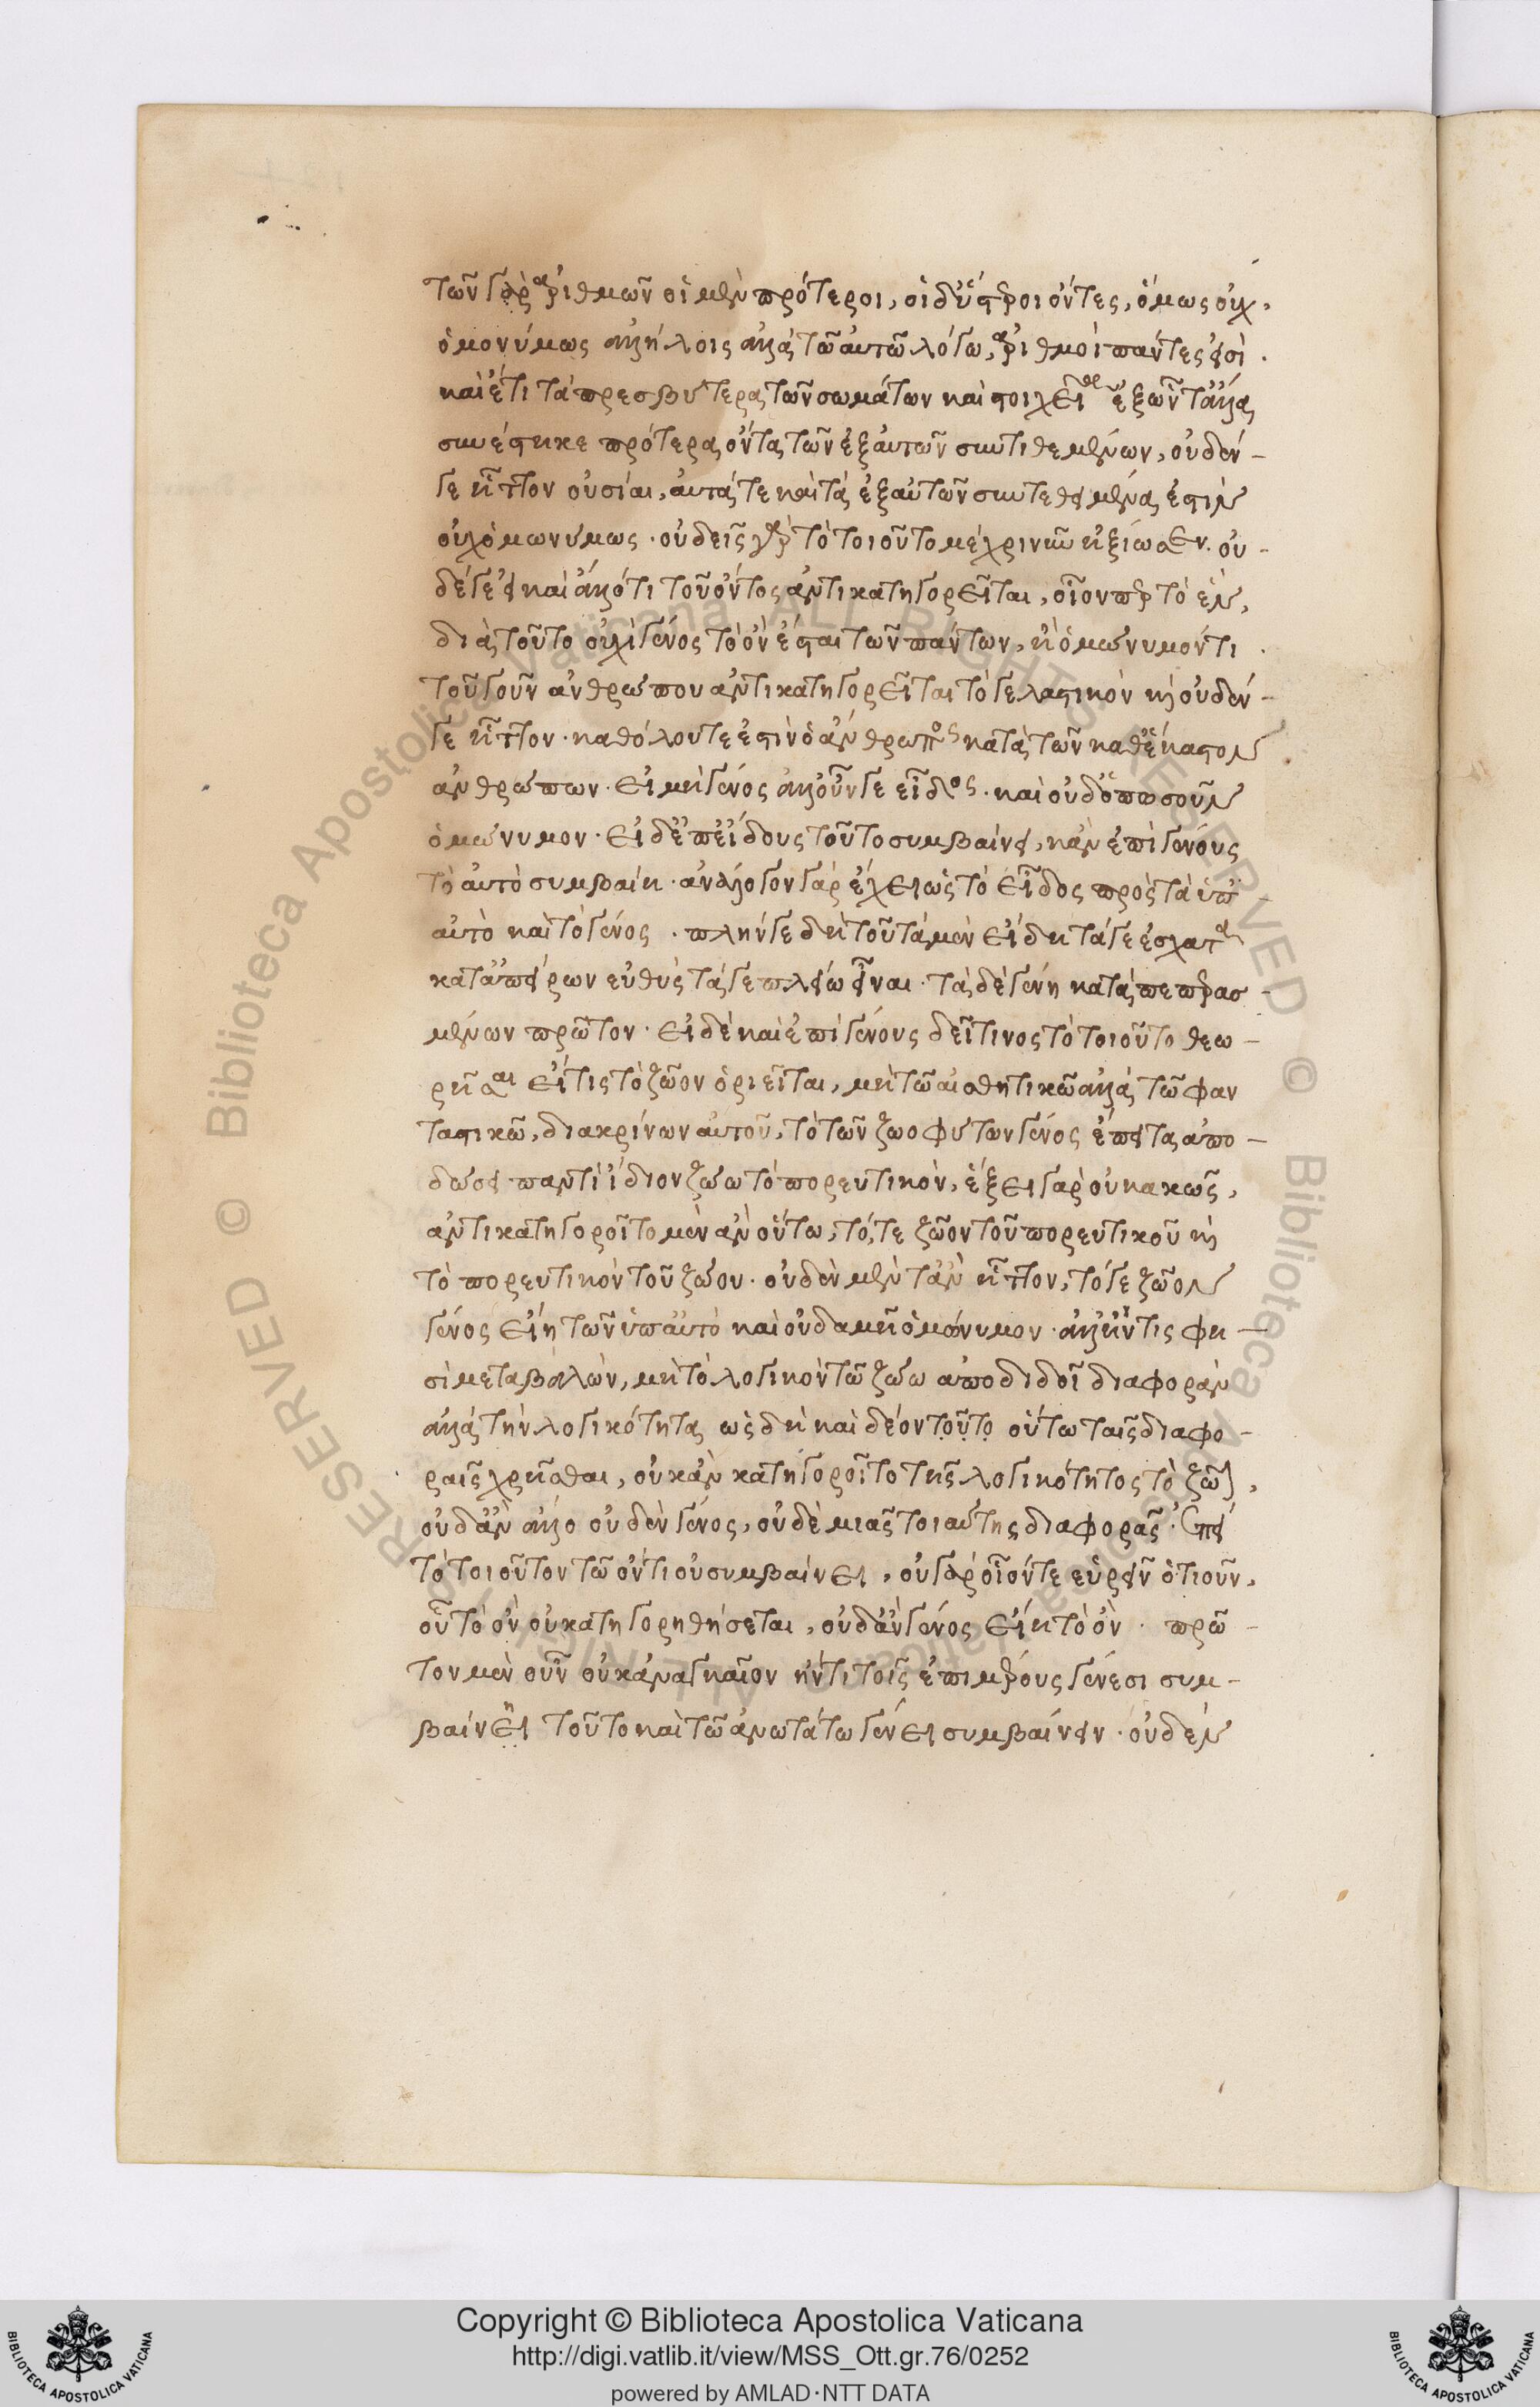 τῶν γὰρ ἀριθμῶν οἱ μὲν πρότεροι, οἱ δ' ὕστεροι ὄντες, ὅμως οὐχ
ὁμονύμως ἀλλήλοις ἀλλὰ τῶ αὐτῶ λόγω, ἀριθμοὶ πάντες εἰσὶ.
καὶ ἔτι τὰ πρεσβύτερα τῶν σωμάτων καὶ στοιχεῖα ἐξ ὧν τἄλλα
συνέστηκε πρότερα ὄντα τῶν ἐξ αὐτῶν συντιθεμένων, οὐδέν-
γε ἧττον οὐσίαι, αὐτά τε καὶ τὰ ἐξ αὐτῶν συντεθειμένα ἐστὶν
οὐχ ὁμωνύμως · οὐδεὶς γὰρ τὸ τοιοῦτο μέχρι νῦν ἠξίωσεν. οὐ-
δέ γε εἰ καὶ ἄλλό τι τοῦ ὄντος ἀντικατηγορεῖται, οἷον περ τὸ ἓν,
διὰ τοῦτο οὐχὶ γένος τὸ ὂν ἔσται τῶν πάντων, ἢ ὁμώνυμόν τι.
τοῦ γοῦν ἀνθρώπου ἀντικατηγορεῖται τὸ γελαστικὸν καὶ οὐδέν-
γε ἧττον · καθόλου τε ἐστὶν ὁ ἄνθρωπος κατὰ τῶν καθέκαστον
ἀνθρώπων · εἰ μὴ γένος ἀλλ' οὖν γε εἶδος · καὶ οὐδ' ὁπωσοῦν
ὁμώνυμον · εἰ δ' ἐπ' εἴδους τοῦτο συμβαίνει, κἂν ἐπὶ γένους
τὸ αὐτὸ συμβαίη · ἀνάλογον γὰρ ἔχει ὡς τὸ εἶδος πρὸς τὰ ὑπ'
αὐτὸ καὶ τὸ γένος · πλήν γε δὴ τοῦ τὰ μὲν εἴδη τά γε ἔσχατα
κατ' ἀπείρων εὐθὺς τά γε πλείω εἶναι · τὰ δὲ γένη κατὰ πεπερασ-
μένων πρῶτον · εἰ δὲ καὶ ἐπὶ γένους δεῖ τινος τὸ τοιοῦτο θεω-
ρῆσαι εἴ τις τὸ ζῶον ὁριεῖται, μὴ τῶ αἰσθητικῶ ἀλλὰ τῶ φαν
ταστικῶ, διακρίνων αὐτοῦ, τὸ τῶν ζωοφύτων γένος ἔπειτα ἀπο-
δώσει παντὶ ἴδιον ζώω τὸ πορευτικὸν, ἕξει γὰρ οὐ κακῶς,
ἀντικατηγοροῖτο μὲν ἂν οὕτω, τό, τε ζῶον τοῦ πορευτικοῦ καὶ
τὸ πορευτικὸν τοῦ ζώου · οὐδὲν μὲν τἂν ἧττον, τό γε ζῶον
γένος εἴη τῶν ὑπ' αὐτὸ καὶ οὐδαμῆ ὁμώνυμον · ἀλλ' ἤν τις φη-
σὶ μεταβαλὼν, μὴ τὸ λογικὸν τῶ ζώω ἀποδιδοῖ διαφορὰν
ἀλλὰ τὴν λογικότητα ὡς δὴ καὶ δέον τοῦτο οὕτω ταῖς διαφο-
ραῖς χρῆσθαι, οὐκ ἂν κατηγοροῖτο τῆς λογικότητος τὸ ζῶον,
οὐδ' ἂν ἄλλο οὐδὲν γένος, οὐδὲ μιᾶς τοιαύτης διαφορᾶς · ἐπεὶ
τὸ τοιοῦτον τῶ ὄντι οὐ συμβαίνει, οὐ γὰρ οἷόν τε εὑρεῖν ὁτιοῦν,
οὗ τὸ ὂν οὐ κατηγορηθήσεται, οὐδ' ἂν γένος εἴη τὸ ὄν · πρῶ-
τον μὲν οὖν οὐκ ἀναγκαῖον ἤν τι τοῖς ἐπιμέρους γένεσι συμ-
βαίνει τοῦτο καὶ τῶ ἀνωτάτω γένει συμβαίνειν · οὐδὲν
Copyright © Biblioteca Apostolica Vaticana
http://digi.vatlib.it/view/MSS_Ott.gr.76/0252
powered by AMLAD·NTT DATA